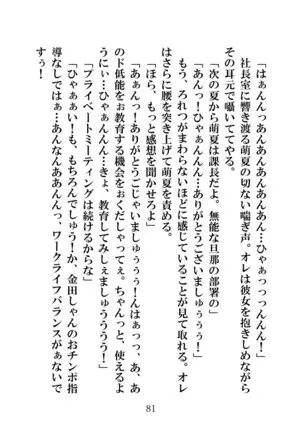 「はぁんんっあんあんあんあん…ひゃぁっっっんんん！」
社長室に響き渡る萌夏の切ない喘ぎ声。オレは彼女を抱きしめながら
その耳元で囁いてやる。
「次の夏から萌夏は課長だよ。無能な旦那の部署の」
「あんっ！ひゃぁんんん…ありがとうございましゅぅぅぅ！」
もう、ろれつがまわらないほどに感じていることが見て取れる。オレ
はさらに腰を突き上げて萌夏を責める。
「ほら、もっと感想を聞かせろよ」
「あぁんっ！ありがとうごじゃいましゅぅぅ！んはぁっっ、あ、あ
のド低能をを教育する機会をぉくだしゃってぇ。ちゃんっと、使えるよ
うにぃ…ひゃぁんんん…きょ、教育してみしぇましゅうううう！」
「プライベートミーティングは続けるからな」
「ひゃぁぁい！も、もちろんでしゅうてか、金田しゃんのおチンポ指
導なしではぁ…あんなんあぁんん、ワークライフバランスがぁないで
すぅぅ！」
81